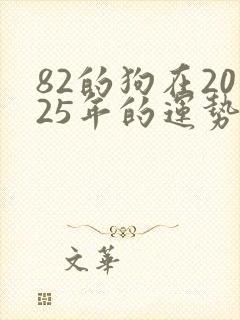 82的狗在20
25年的運勢
文華